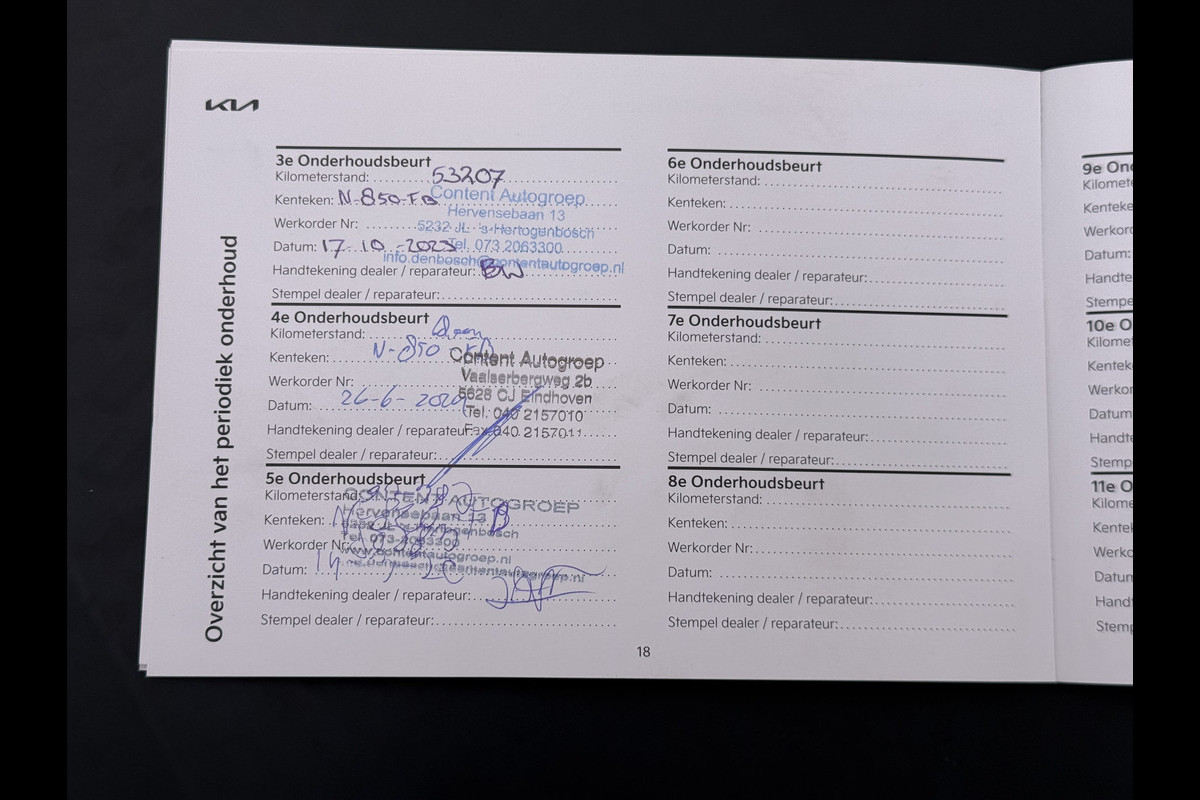 KIA
Overzicht van het periodiek onderhoud
3e Onderhoudsbeurt
Kilometerstand: 53207
Kenteken: N-850-FB
Content Autogroep
Hervensebaan 13
Werkorder Nr:
5232 JL 's-Hertogenbosch
Datum: 17-10-2023
Tel. 073 2063300
info.denbosch@contentautogroep.nl
Handtekening dealer / reparateur: BW
Stempel dealer / reparateur:
4e Onderhoudsbeurt
Kilometerstand:
Kenteken: N-850
Content Autogroep
Vaalserbergweg 2b
Werkorder Nr:
5628 CJ Eindhoven
Datum: 26-6-
Tel. 040 2157010
Handtekening dealer / reparateur:
Fax 040 2157011
Stempel dealer / reparateur:
5e Onderhoudsbeurt
Kilometerstand:
CONTENT AUTOGROEP
Hervensebaan 13
Kenteken:
5232 JL 's-Hertogenbosch
Tel. 073-2063300
Werkorder Nr:
www.contentautogroep.nl
Datum:
Handtekening dealer / reparateur:
Stempel dealer / reparateur:
6e Onderhoudsbeurt
Kilometerstand:
Kenteken:
Werkorder Nr:
Datum:
Handtekening dealer / reparateur:
Stempel dealer / reparateur:
7e Onderhoudsbeurt
Kilometerstand:
Kenteken:
Werkorder Nr:
Datum:
Handtekening dealer / reparateur:
Stempel dealer / reparateur:
8e Onderhoudsbeurt
Kilometerstand:
Kenteken:
Werkorder Nr:
Datum:
Handtekening dealer / reparateur:
Stempel dealer / reparateur:
9e On
Kilomet
Kenteke
Werkord
Datum:
Handte
Stempe
10e O
Kilome
Kentek
Werkor
Datum
Handt
Stemp
11e O
Kilome
Kentel
Werko
Datun
Hand
Stemp
18